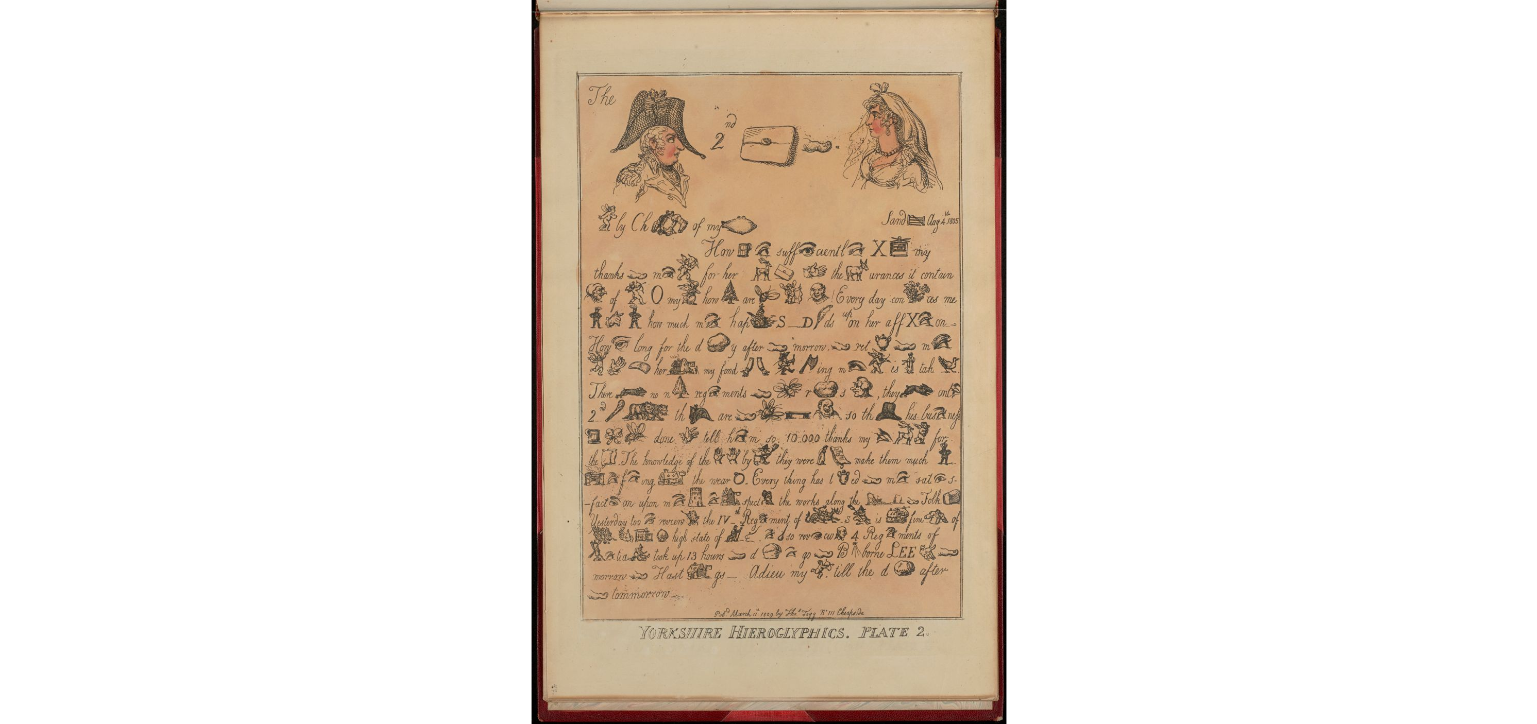 The 2nd
by Ch of my Sand Aug 4th 1805
How suff cientl X my
thanks m for her the urances it contain
of O my how are Every day con ces me
how much m hap S D ds on her aff X on
How long for the d y after morrow ret m
her my fond ing m is tak
There no n reg ments r s , they onl
2d th are so th his bus ness
done tell h m so 10.000 thanks my for
the . The knowledge of the by they were make them much
f ng the wear O. Every thing has t ed m sat s-
-fact on upon m spect the works along the Folk
Yesterday too review the IV Reg ment of s is fine of
high state of d so rev 4 Reg ments of
tia took up 13 hours d go B borne LEE
morrow Hast gs Adieu my till the d after
tommorrow
Pubd March 11 1809 by Thos Tegg No 111 Cheapside
YORKSHIRE HIEROGLYPHICS. PLATE 2.